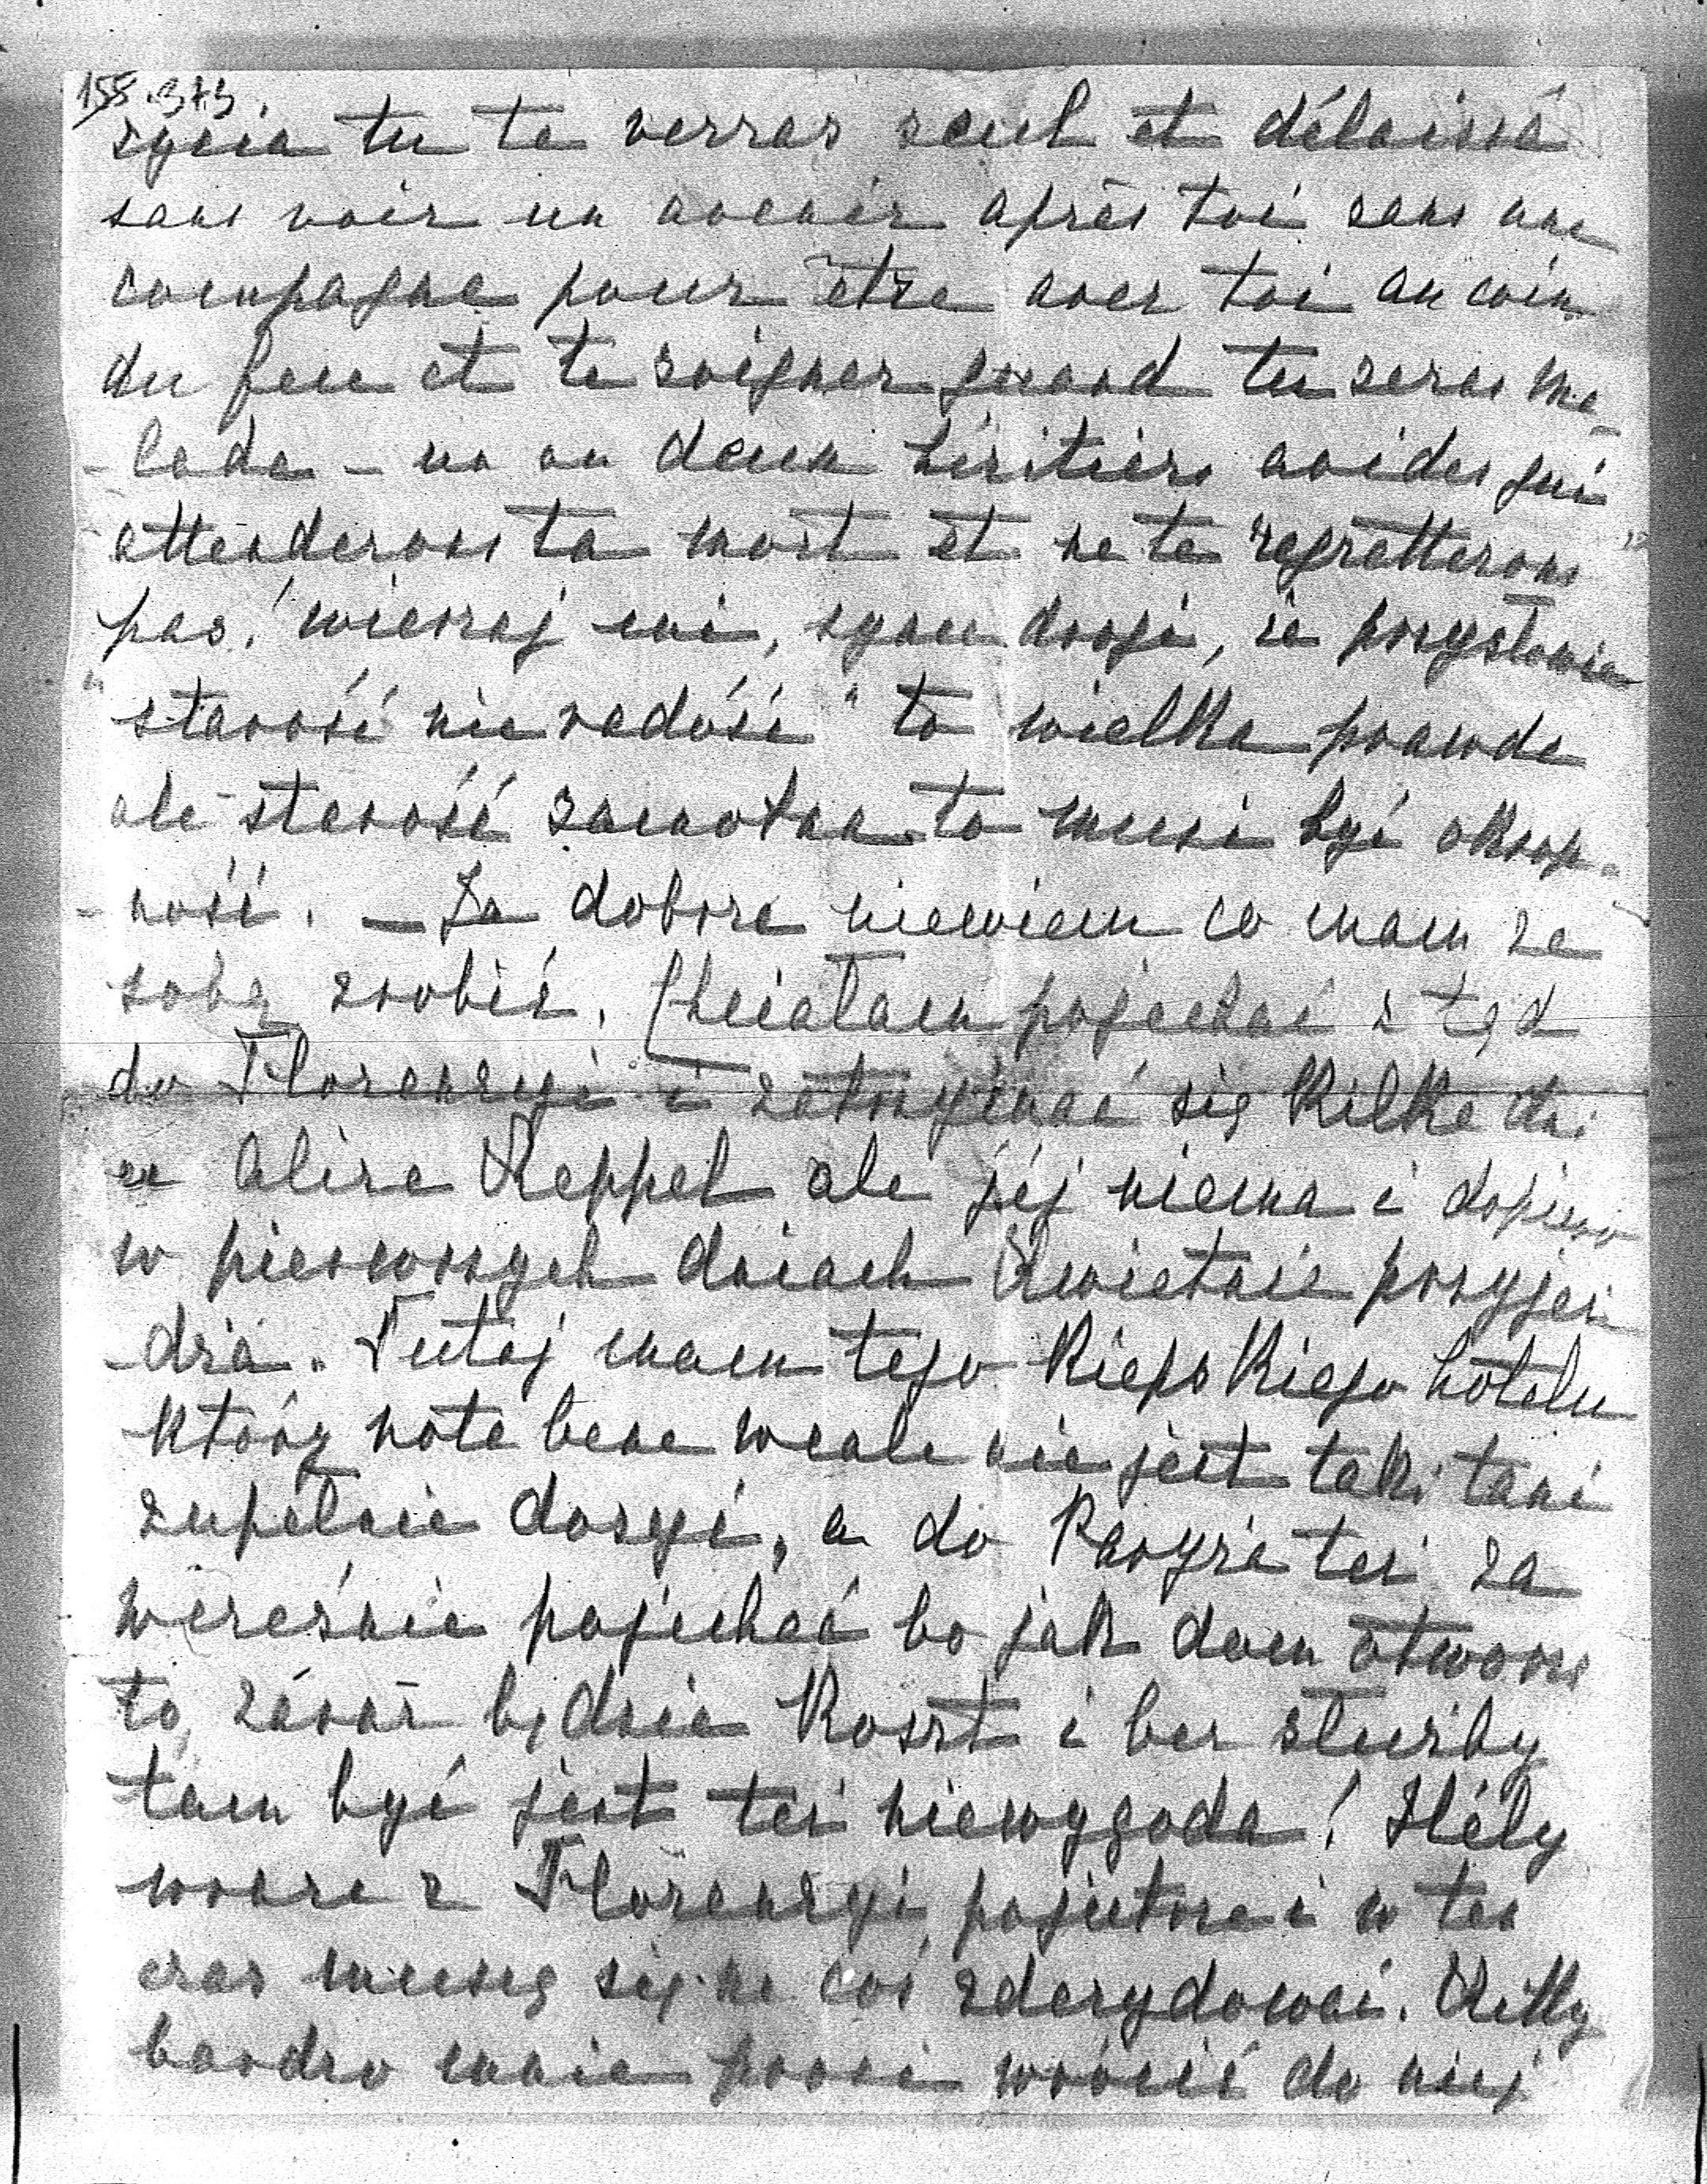 158.373.
życia tu te verras seul et délaissé
sans voir un avenir après toi sans une
compagne pour être avec toi au coin
du feu et te soigner quand tu seras ma-
-lade - un ou deux héritiers avides qui
attenderons ta mort et ne te regretterons
pas! wierzaj mi, synu drogi, że przysłowie
"starość nie radość" to wielka prawda
ale starość samotna to musi być okrop-
-ność. - Ja dobrze niewiem co mam ze
sobą zrobić. Chciałam pojechać z tąd
do Florencyi i zatrzymać się kilka dni
u Alice Keppel ale jéj niema i dopiero
w pierwszych dniach Kwietnia przyjeż-
-dża. Tutaj mam tego kiepskiego hôtelu
który nota bene wcale nie jest taki tani
zupełnie dosyć, a do Paryża też za
wcześnie pojechać bo jak dom otworzę
to zaraz będzie koszt i bez służby
tam być jest też niewygoda! Hély
wraca z Florencyi pojutrze i w ten
czas muszę się na coś zdecydować. Kitty
bardzo mnie prosi wrócić do niej